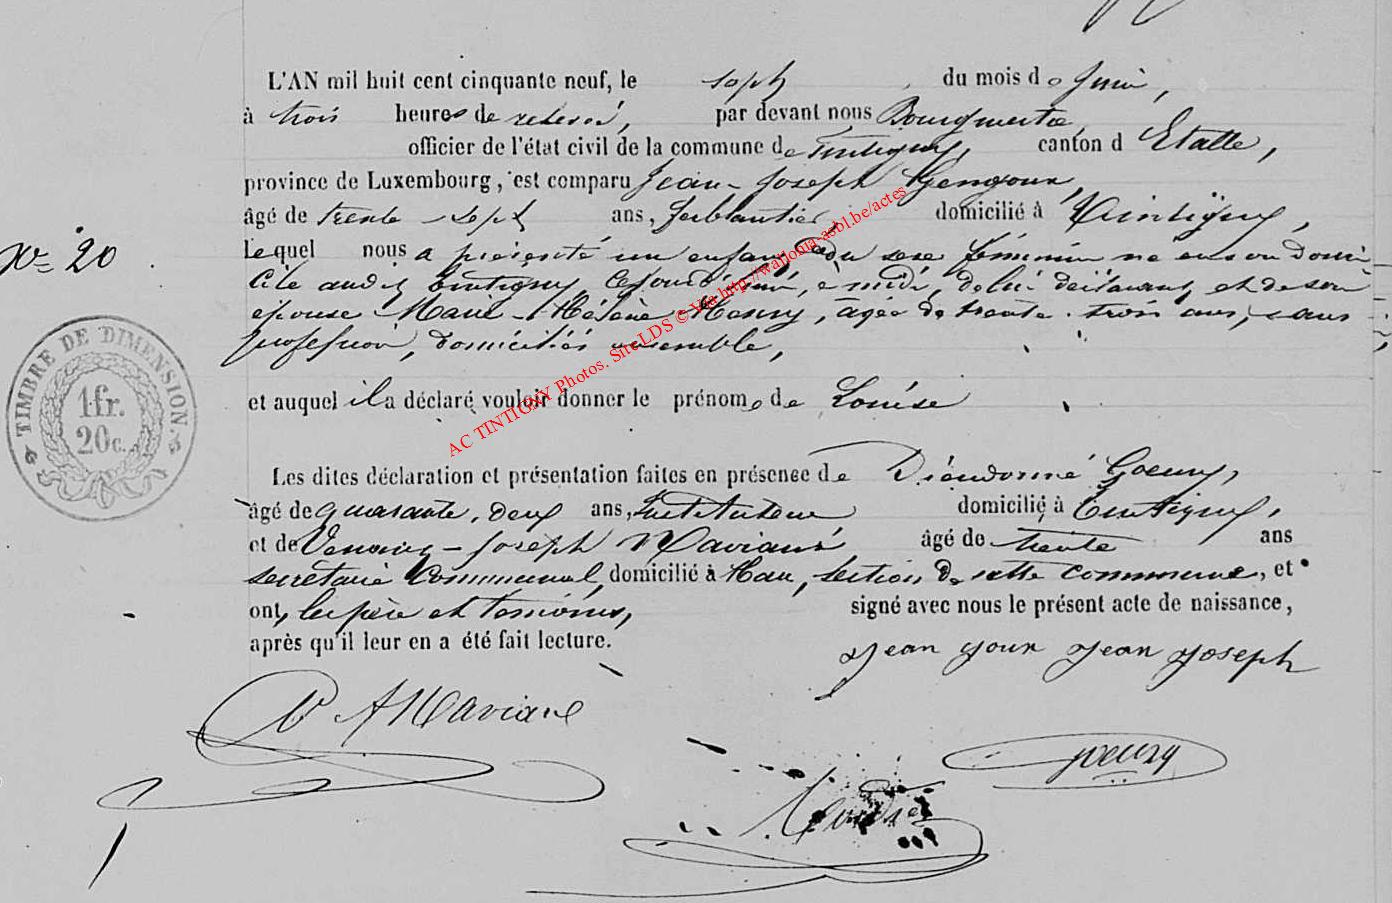 L'AN mil huit cent cinquante neuf, le sept du mois de Juin,
à trois heures de relevée, par devant nous Bourgmestre,
officier de l'état civil de la commune de Tintigny, canton d'Etalle,
province de Luxembourg, est comparu Jean-Joseph Gengoux,
âgé de trente-sept ans, ferblantier domicilié à Tintigny,
Lequel nous a présenté un enfant du sexe féminin né en son domi-
cile audit Tintigny cejourd'hui, à midi, de lui déclarant, et de son
épouse Marie-Hélène Henry, âgée de trente-trois ans, sans
profession, domiciliés ensemble,
N° 20
et auquel il a déclaré vouloir donner le prénom de Louise
TIMBRE DE DIMENSION.
1 fr.
20 c.
Les dites déclaration et présentation faites en présence de Dieudonné Goeury,
âgé de quarante-deux ans, Instituteur domicilié à Tintigny,
et de Joseph âgé de trente ans
secrétaire Communal, domicilié à Han, section de cette commune, et
ont, le père et témoins, signé avec nous le présent acte de naissance,
après qu'il leur en a été fait lecture.
Jean Joseph
Goeury
AC TINTIGNY Photos. Site LDS © Via http://wallonia-asbl.be/actes